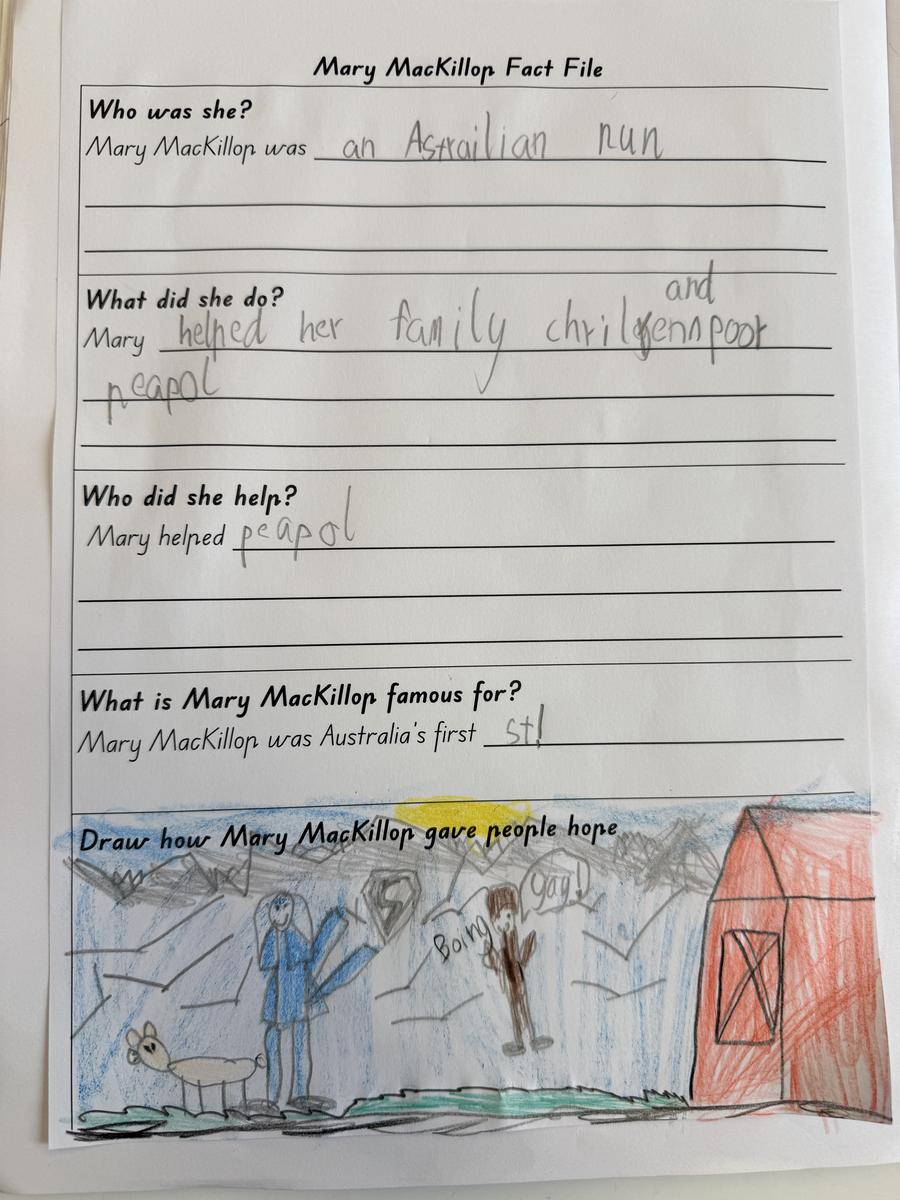 Mary MacKillop Fact File
Who was she?
Mary MacKillop was an Astrailian nun
What did she do?
and
Mary helped her family chrilrenn poor
peapol
Who did she help?
Mary helped peapol
What is Mary MacKillop famous for?
Mary MacKillop was Australia's first st!
Draw how Mary MacKillop gave people hope
S
yay!
Boing